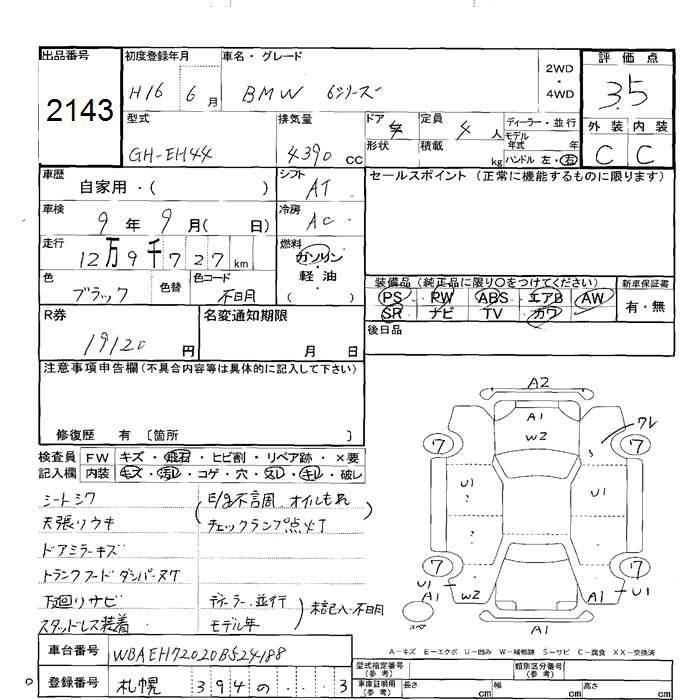 出品番号
2143
初度登録年月
H16 6月
車名・グレード
BMW 6シリーズ
2WD
・
4WD
評価点
3.5
外装 内装
C C
型式
GH-EH44
排気量
4390 cc
ドア
形状
定員
4人
積載
kg
ディーラー・並行
モデル
年式 年
ハンドル 左・右
車歴
自家用・( )
シフト
AT
セールスポイント (正常に機能するものに限ります)
車検
9年9月( 日)
冷房
AC
走行
12万9千727km
燃料
ガソリン
・
軽油
( )
色
ブラック
色替
色コード
不明
装備品 (純正品に限り○をつけてください)
PS PW ABS エアB AW
SR ナビ TV カワ
新車保証書
有・無
後日品
R券
19120円
名変通知期限
月 日
注意事項申告欄(不具合内容等は具体的に記入して下さい)
修復歴 有 〔箇所 〕
検査員
記入欄
FW キズ・飛石・ヒビ割・リペア跡・×要
内装 キズ・汚レ・コゲ・穴・スレ・キレ・破レ
シートシワ
天張リウキ
ドアミラーキズ
トランクフードダンパーヌケ
下回りサビ
スタッドレス装着
(E/g不調 オイルもれ
チェックランプ点灯)
ディーラー、並行
モデル年
)未記入・不明
A2
A1
W2
ワレ
7
7
U1
U1
7
7
U1
A1
W2
A1
U1
スペア
A1
A-キズ E-エクボ U-凹み W-補修跡 S-サビ C-腐食 XX-交換済
車台番号
WBAEH72020B524188
登録番号
札幌 394の 3
型式指定番号
(参考)
類別区分番号
(参考)
車庫証明用
(参考)
長さ cm
幅 cm
高さ cm